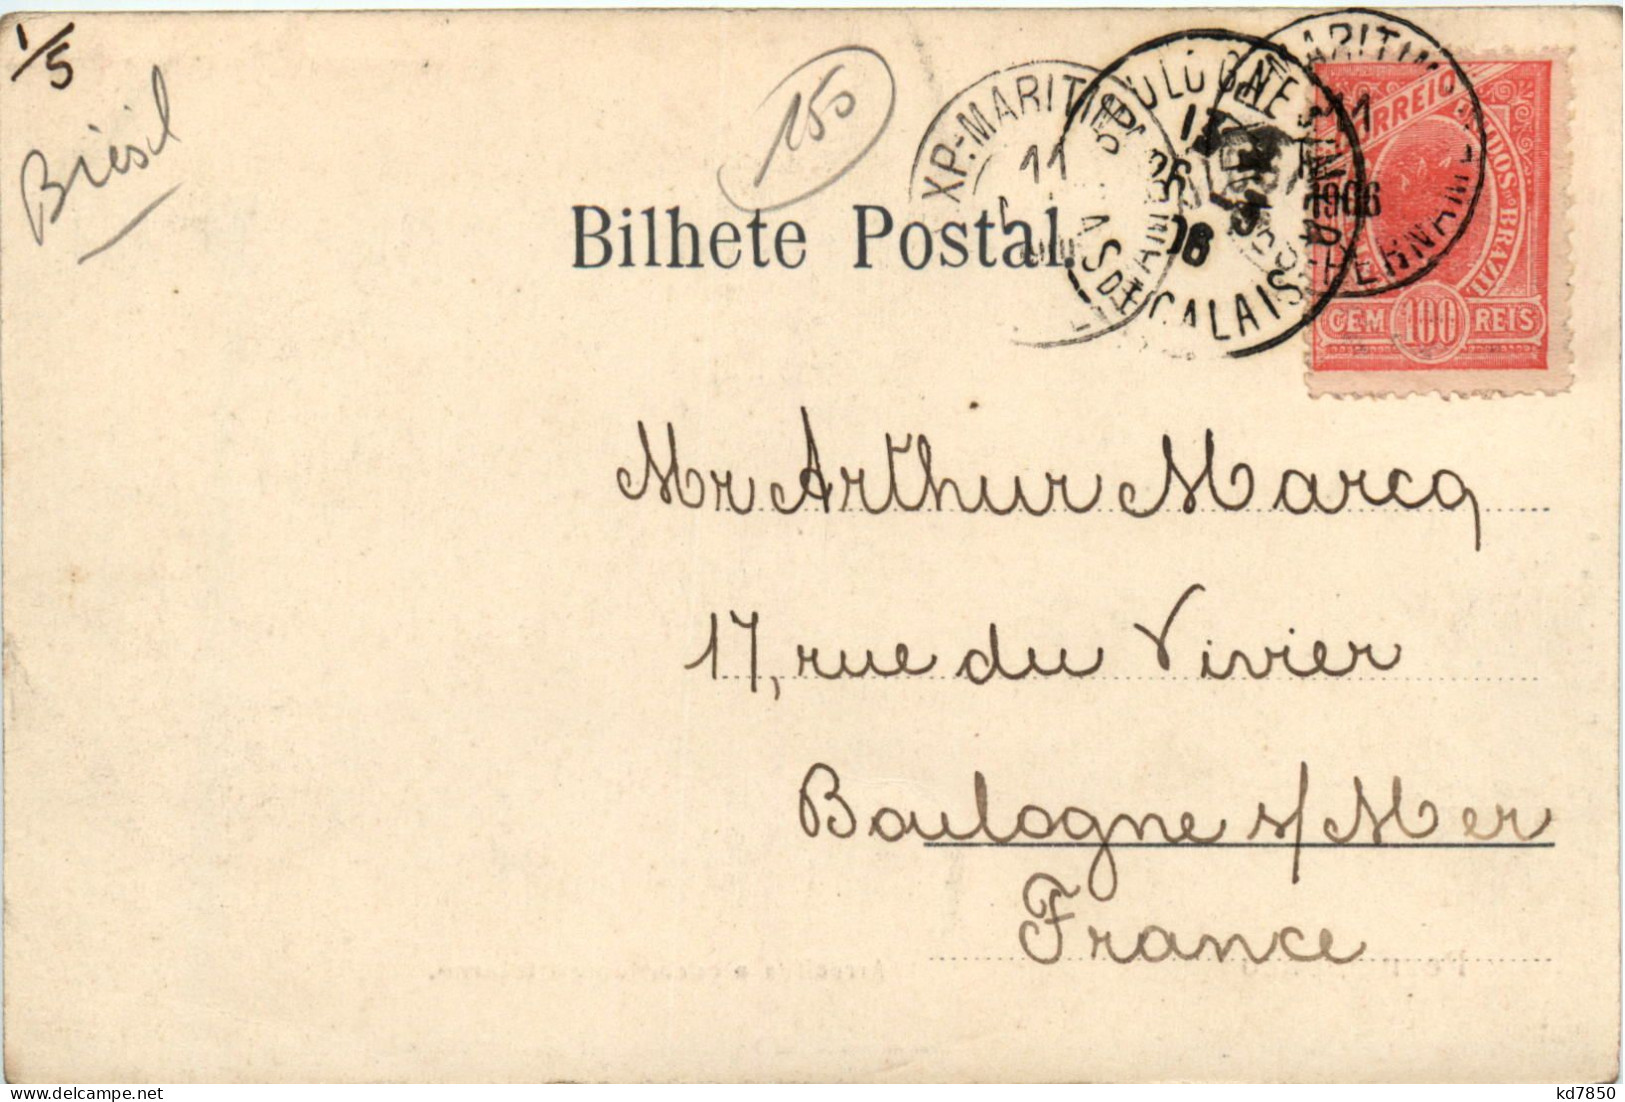 1/5
Brésil
150
Bilhete Postal.
EXP. MARITIMA
11
BOULOGNE S MER
26
06
PAS DE CALAIS
MARITIMA
11
1906
PERNAMBUCO
CORREIO
DOS BRAZIL
CEM 100 REIS
Mr Arthur Marcq
17, rue du Vivier
Boulogne s/Mer
France
kd7850